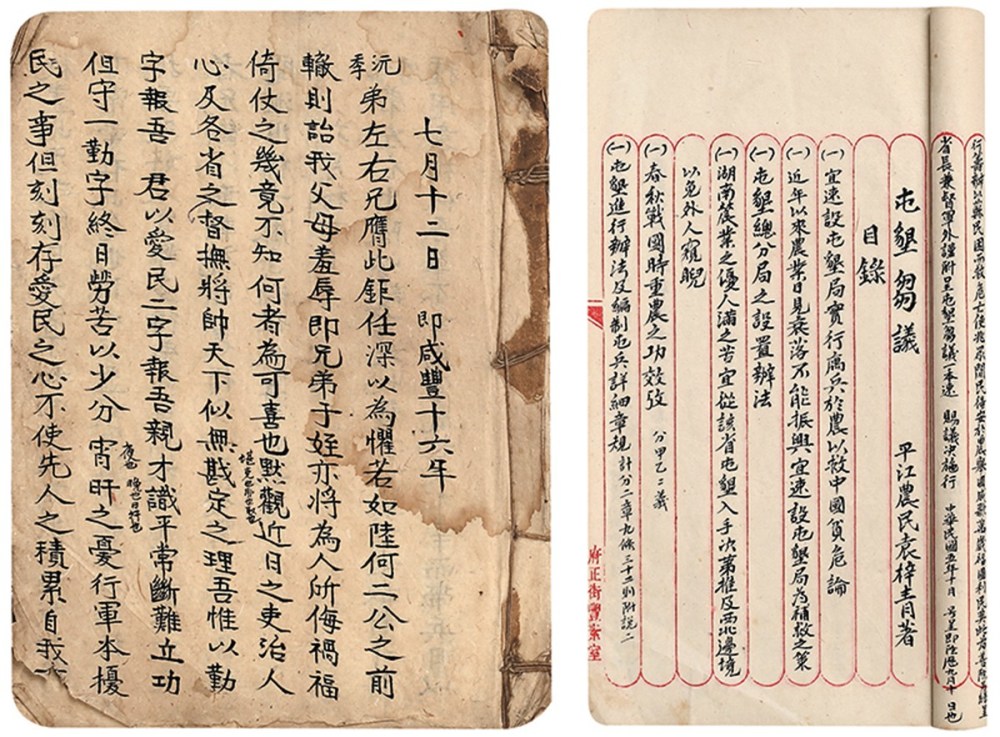 七月十二日 即咸豐十六年
沅季弟左右兄膺此鉅任深以為懼若如陸何二公之前
轍則詒我父母羞辱即兄弟子姪亦將為人所侮禍福
倚仗之幾竟不知何者為可喜也默觀近日之吏治人
心及各省之督撫將帥天下似無戡定之理吾惟以勤
字報吾 君以愛民二字報吾親才識平常斷難立功
但守一勤字終日勞苦以少分 宵旰之憂行軍本擾
民之事但刻刻存愛民之心不使先人之積累自我
省長兼督軍外謹附呈屯墾芻議一本速 賜議決施行 中華民國五年十月
屯墾芻議 平江農民袁梓青著
目錄
(一)宜速設屯墾局實行寓兵於農以救中國貧危論
(一)近年以來農業日見衰落不能振興宜速設屯墾局為補救之策
(一)屯墾總分局之設置辦法
(一)湖南農業之優人滿之苦宜從該省屯墾入手次第推及西北邊境
以免外人窺睨
(一)春秋戰國時重農之功效攷 分甲乙二義
(一)屯墾進行辦法及編制屯兵詳細章規 計分二章九條三十二則附說二
府正街豐案室